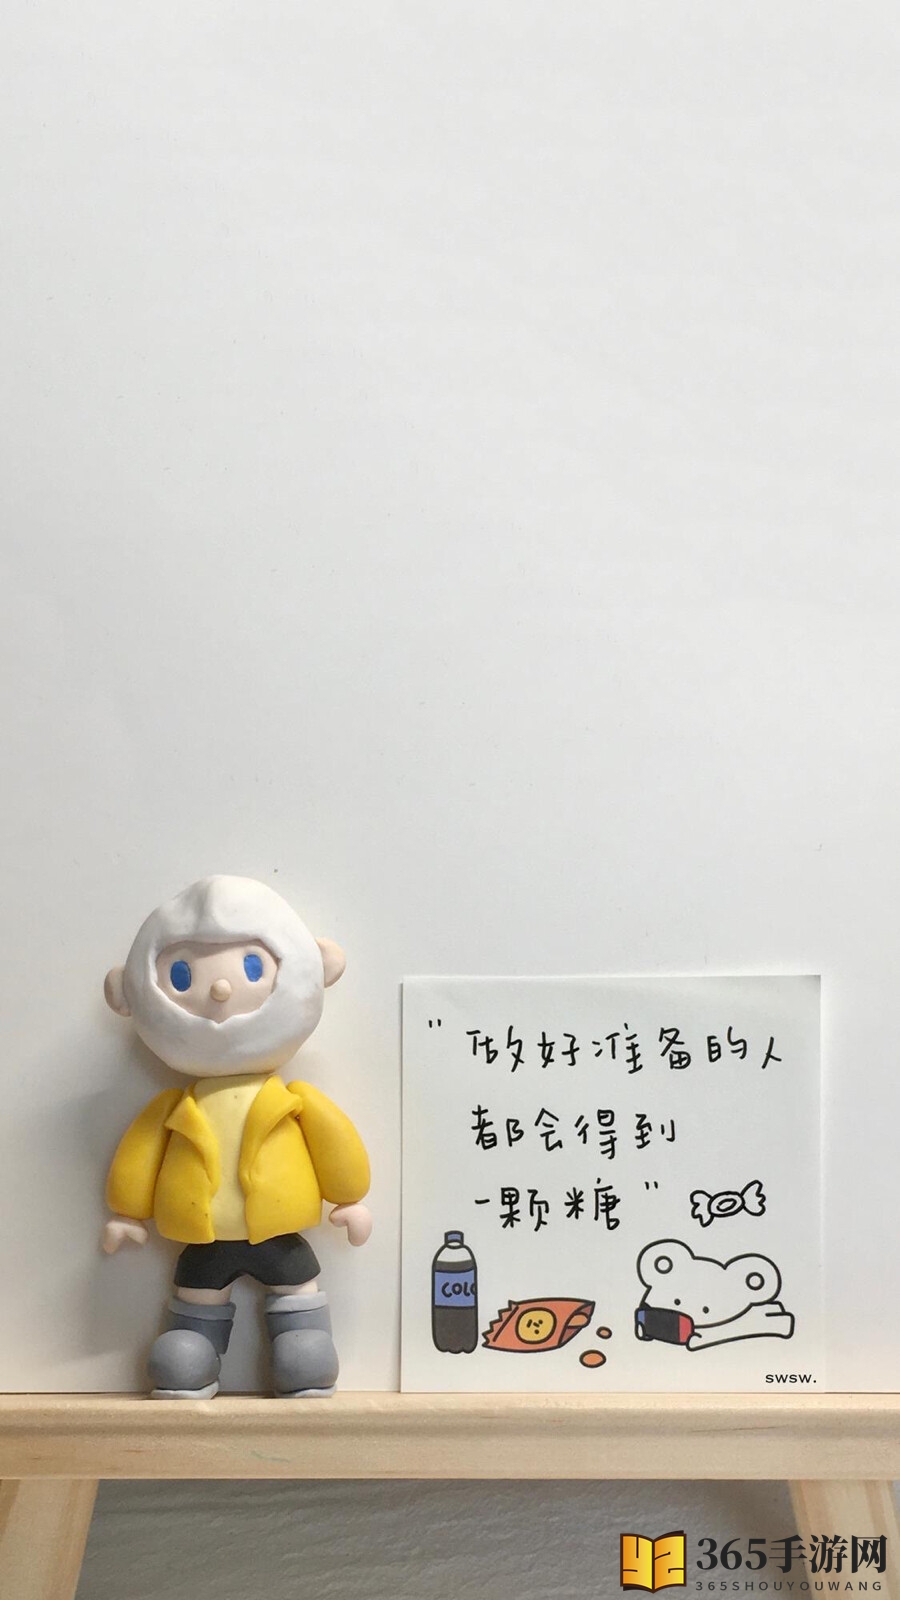 "做好准备的人
都会得到
一颗糖"
COLO
swsw.
365手游网
365SHOUYOUWANG